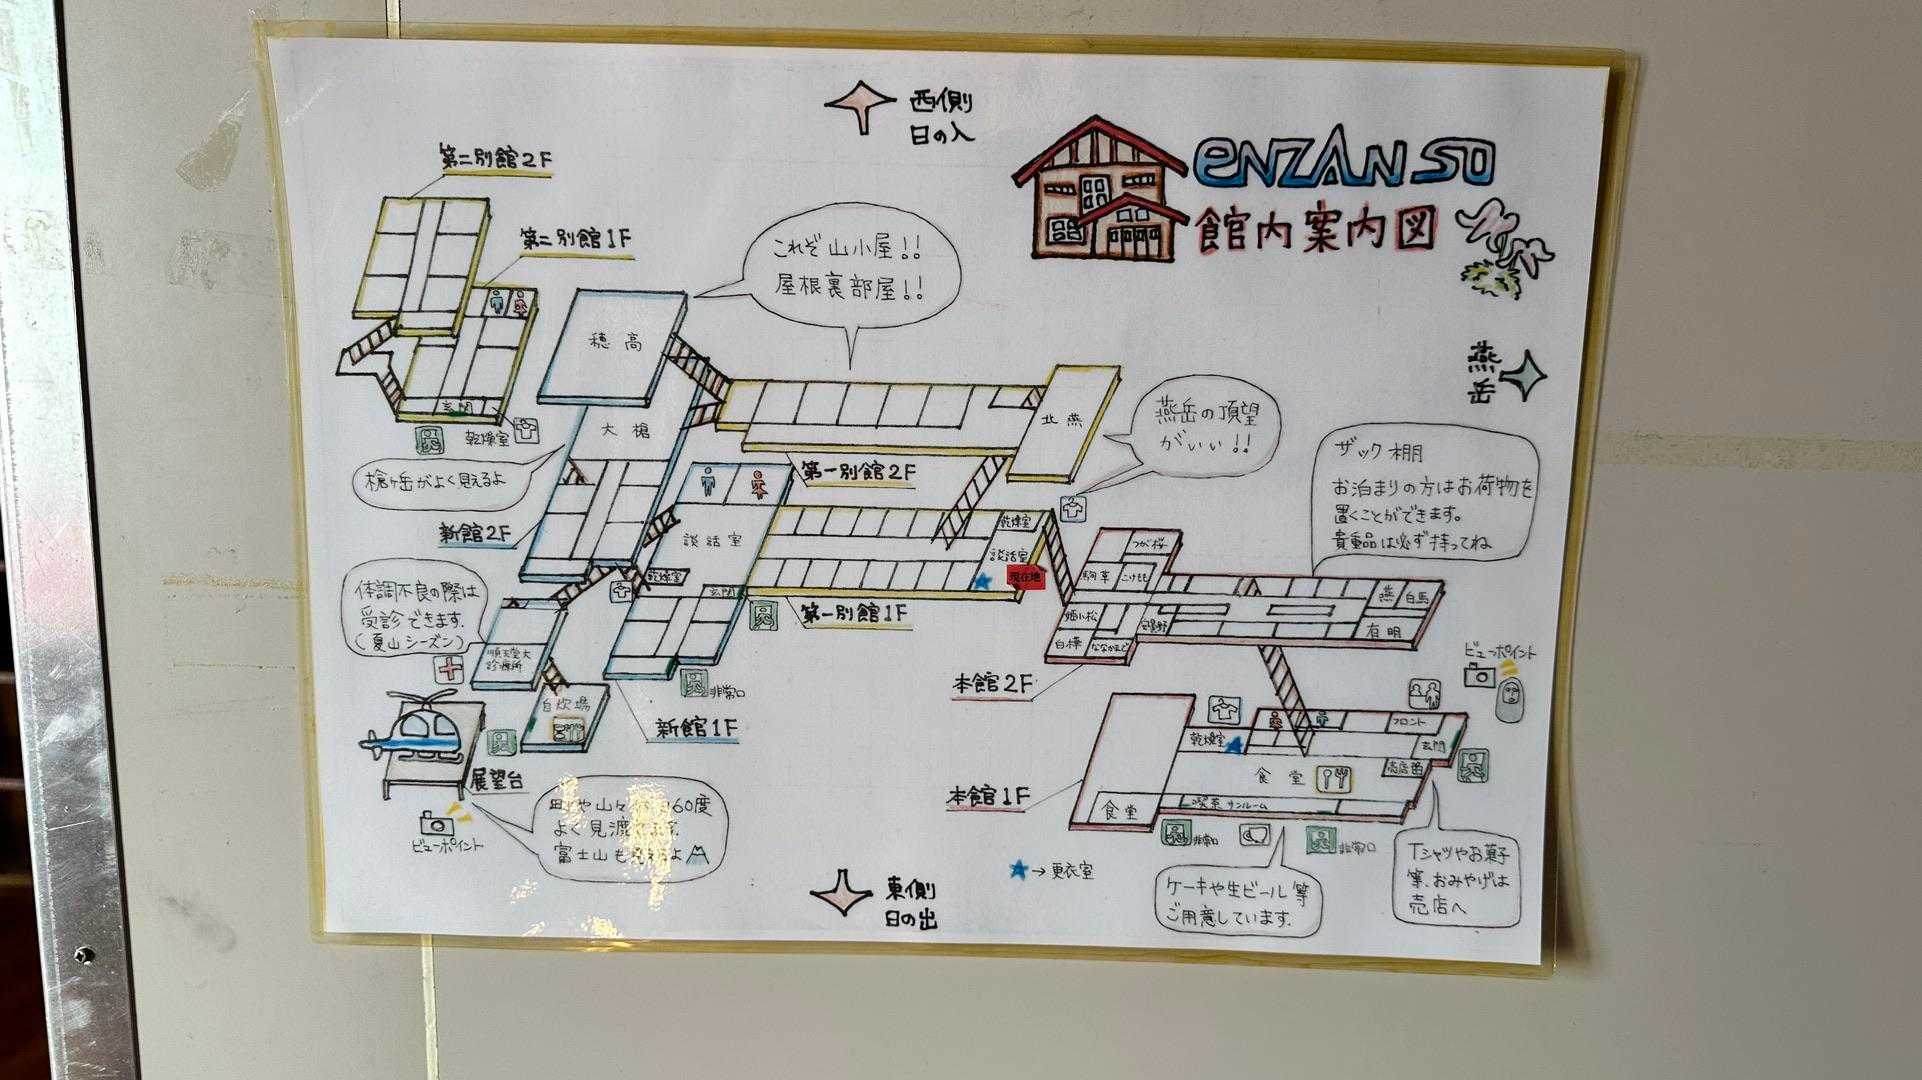 西側
日の入
ENZANSO
館内案内図
第二別館2F
第二別館1F
玄関
乾燥室
これぞ山小屋!!
屋根裏部屋!!
燕岳
穂高
大槍
槍ヶ岳がよく見えるよ
新館2F
北燕
燕岳の頂望
がいい!!
第一別館2F
ザック棚
お泊まりの方はお荷物を
置くことができます。
貴重品は必ず持ってね
談話室
乾燥室
玄関
乾燥室
談話室
現在地
第一別館1F
体調不良の際は
受診できます。
(夏山シーズン)
順天堂大
診療所
自炊場
非常口
新館1F
つが桜
駒草
こけもも
姫小松
白樺
ななかまど
燕
白馬
有明
本館2F
ビューポイント
展望台
ビューポイント
60度
富士山も
フロント
玄関
売店
乾燥室
食堂
喫茶サンルーム
食堂
本館1F
非常口
非常口
Tシャツやお菓子
等、おみやげは
売店へ
ケーキや生ビール等
ご用意しています。
→更衣室
東側
日の出